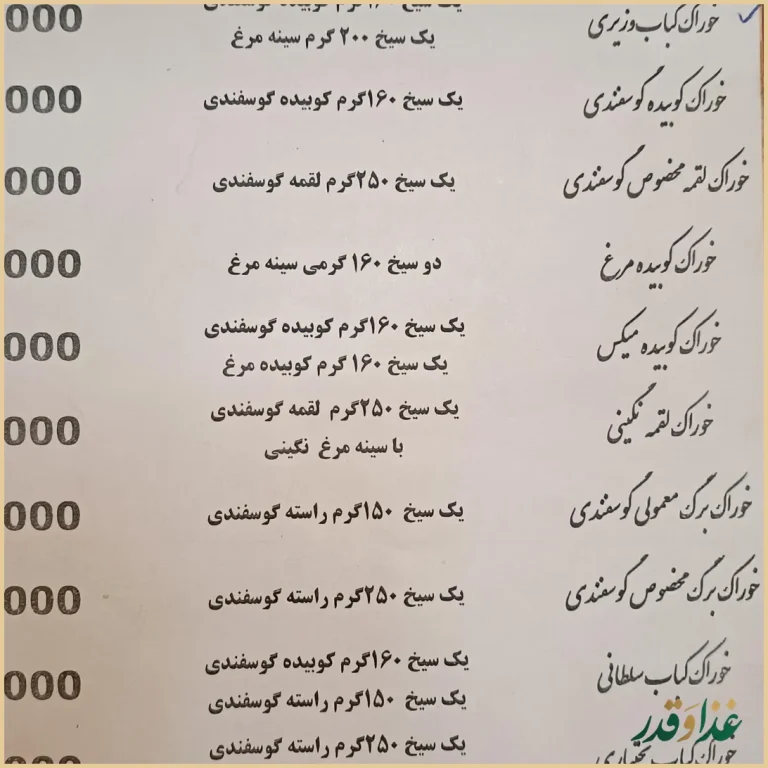 خوراک کباب وزیری
یک سیخ ۱۶۰گرم کوبیده گوسفندی
یک سیخ ۲۰۰ گرم سینه مرغ
000
خوراک کوبیده گوسفندی
یک سیخ ۱۶۰گرم کوبیده گوسفندی
000
خوراک لقمه مخصوص گوسفندی
یک سیخ ۲۵۰گرم لقمه گوسفندی
000
خوراک کوبیده مرغ
دو سیخ ۱۶۰ گرمی سینه مرغ
000
خوراک کوبیده میکس
یک سیخ ۱۶۰گرم کوبیده گوسفندی
یک سیخ ۱۶۰ گرم کوبیده مرغ
000
خوراک لقمه نگینی
یک سیخ ۲۵۰گرم لقمه گوسفندی
با سینه مرغ نگینی
000
خوراک برگ معمولی گوسفندی
یک سیخ ۱۵۰گرم راسته گوسفندی
000
خوراک برگ مخصوص گوسفندی
یک سیخ ۲۵۰گرم راسته گوسفندی
000
خوراک کباب سلطانی
یک سیخ ۱۶۰گرم کوبیده گوسفندی
یک سیخ ۱۵۰گرم راسته گوسفندی
000
غذا و قدر
خوراک کباب بختیاری
یک سیخ ۲۵۰گرم راسته گوسفندی
000